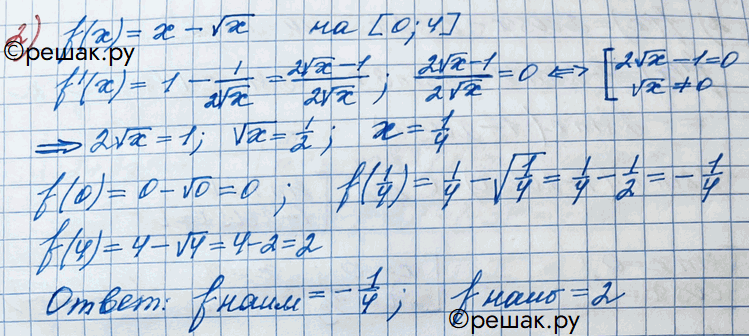 2) f(x) = x − √x на [0; 4]
©решак.ру
f'(x) = 1 − 1/(2√x) = (2√x − 1)/(2√x) ; (2√x − 1)/(2√x) = 0 ⟺ [2√x − 1 = 0
√x ≠ 0
⟹ 2√x = 1; √x = 1/2 ; x = 1/4
f(0) = 0 − √0 = 0 ; f(1/4) = 1/4 − √(1/4) = 1/4 − 1/2 = −1/4
f(4) = 4 − √4 = 4 − 2 = 2
Ответ: f наим = −1/4 ; f наиб = 2
©решак.ру